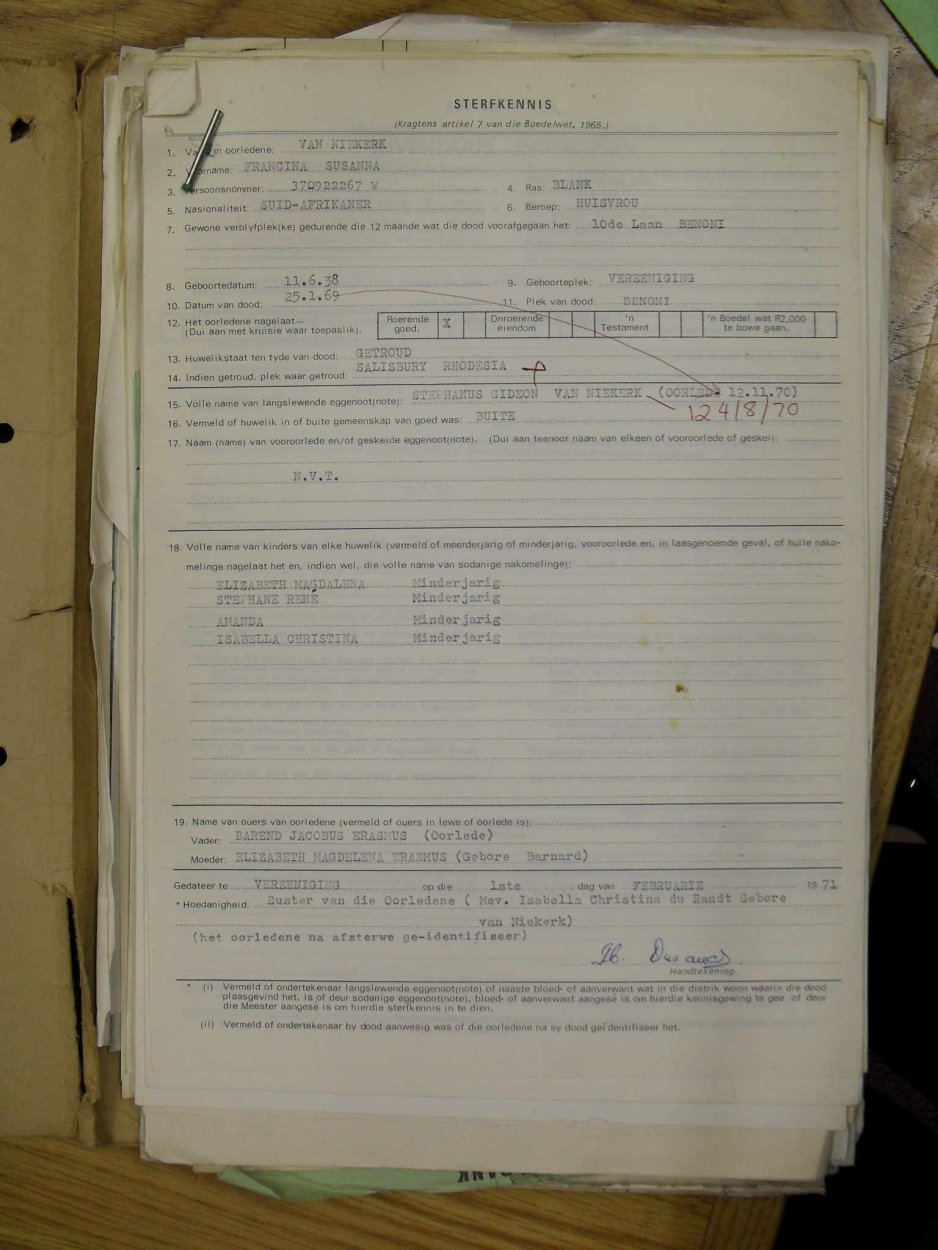 STERFKENNIS
(Kragtens artikel 7 van die Boedelwet, 1965.)
1. Van oorledene: VAN NIEKERK
2. Voorname: FRANCINA SUSANNA
3. Persoonsnommer: 370922267 W 4. Ras: BLANK
5. Nasionaliteit: SUID-AFRIKANER 6. Beroep: HUISVROU
7. Gewone verblyfplek(ke) gedurende die 12 maande wat die dood voorafgegaan het: 10de Laan BENONI
8. Geboortedatum: 11.6.38 9. Geboorteplek: VEREENIGING
10. Datum van dood: 25.1.69 11. Plek van dood: BENONI
12. Het oorledene nagelaat— Roerende goed. X Onroerende eiendom 'n Testament 'n Boedel wat R2,000 te bowe gaan.
(Dui aan met kruisie waar toepaslik).
13. Huwelikstaat ten tyde van dood: GETROUD
14. Indien getroud, plek waar getroud: SALISBURY RHODESIA
15. Volle name van langslewende eggenoot(note): STEPHANUS GIDEON VAN NIEKERK (OORLEDE 12.11.70)
124/8/70
16. Vermeld of huwelik in of buite gemeenskap van goed was: BUITE
17. Naam (name) van vooroorlede en/of geskeide eggenoot(note). (Dui aan teenoor naam van elkeen of vooroorlede of geskei):
N.V.T.
18. Volle name van kinders van elke huwelik (vermeld of meerderjarig of minderjarig, vooroorlede en, in laasgenoemde geval, of hulle nako-
melinge nagelaat het en, indien wel, die volle name van sodanige nakomelinge):
ELIZABETH MAGDALENA Minderjarig
STEPHANE RENÉ Minderjarig
AMANDA Minderjarig
ISABELLA CHRISTINA Minderjarig
19. Name van ouers van oorledene (vermeld of ouers in lewe of oorlede is):
Vader: BAREND JACOBUS ERASMUS (Oorlede)
Moeder: ELIZABETH MAGDELENA ERASMUS (Gebore Barnard)
Gedateer te VEREENIGING op die 1ste dag van FEBRUARIE 1971
* Hoedanigheid: Suster van die Oorledene ( Mev. Isabella Christina du Randt Gebore
van Niekerk)
(het oorledene na afsterwe ge-identifiseer)
Handtekening.
* (i) Vermeld of ondertekenaar langslewende eggenoot(note) of naaste bloed- of aanverwant wat in die distrik woon waarin die dood
plaasgevind het, is of deur sodanige eggenoot(note), bloed- of aanverwant aangesê is om hierdie kennisgewing te gee of deur
die Meester aangesê is om hierdie sterfkennis in te dien.
(ii) Vermeld of ondertekenaar by dood aanwesig was of die oorledene na sy dood geïdentifiseer het.